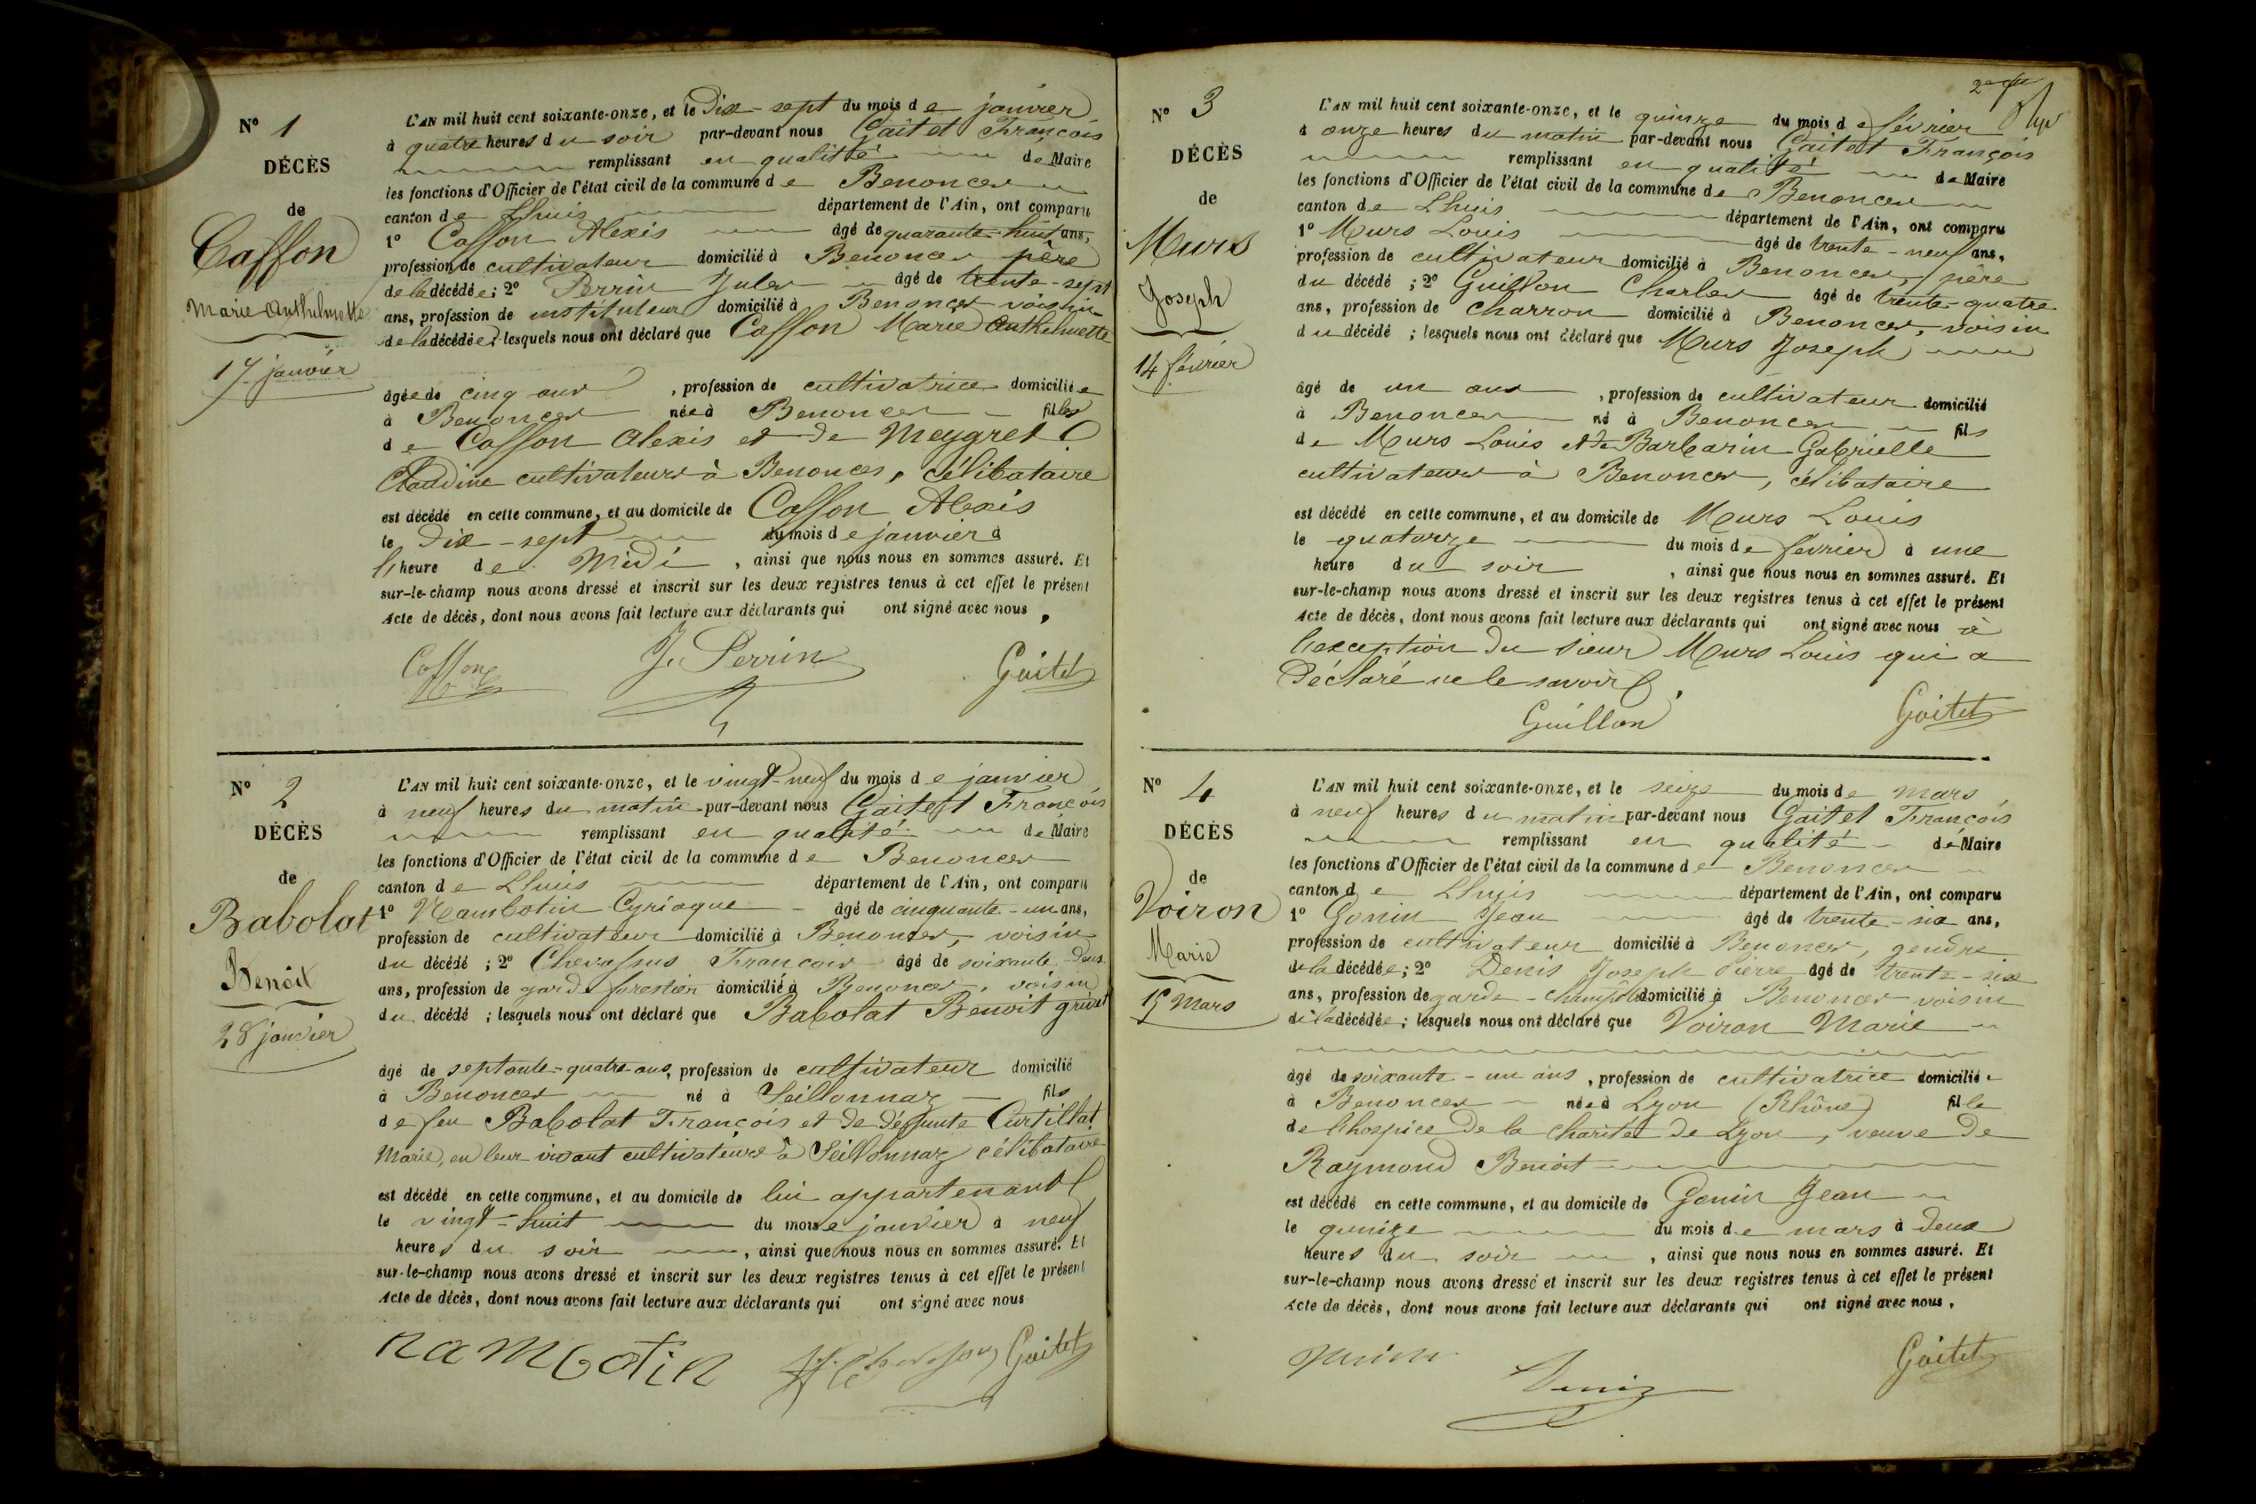 N° 1
DÉCÈS
de
Casson
Marie Anthelmette
17 janvier
L'AN mil huit cent soixante-onze, et le Dix-sept du mois de janvier
à quatre heures du soir par-devant nous Gaitet François
remplissant en qualité de Maire
les fonctions d'Officier de l'état civil de la commune de Benonces
canton de Lhuis département de l'Ain, ont comparu
1° Casson Alexis âgé de quarante-huit ans,
profession de cultivateur domicilié à Benonces père
de la décédée; 2° Perrin Jules âgé de trente-sept
ans, profession de instituteur domicilié à Benonces voisin
de la décédée; lesquels nous ont déclaré que Casson Marie Anthelmette
âgée de cinq ans, profession de cultivatrice domiciliée
à Benonces née à Benonces fille
de Casson Alexis et de Meygret
Claudine cultivateurs à Benonces, célibataire
est décédé en cette commune, et au domicile de Casson Alexis
le Dix-sept du mois de janvier à
l'heure de Midi, ainsi que nous nous en sommes assuré. Et
sur-le-champ nous avons dressé et inscrit sur les deux registres tenus à cet effet le présent
Acte de décès, dont nous avons fait lecture aux déclarants qui ont signé avec nous.
Casson J. Perrin Gaitet
N° 2
DÉCÈS
de
Babolat
Benoit
28 janvier
L'AN mil huit cent soixante-onze, et le vingt-neuf du mois de janvier
à neuf heures du matin par-devant nous Gaitet François
remplissant en qualité de Maire
les fonctions d'Officier de l'état civil de la commune de Benonces
canton de Lhuis département de l'Ain, ont comparu
1° Nambotin Cyriaque âgé de cinquante-un ans,
profession de cultivateur domicilié à Benonces, voisin
du décédé; 2° Chevassus François âgé de soixante-deux
ans, profession de garde forestier domicilié à Benonces, voisin
du décédé; lesquels nous ont déclaré que Babolat Benoit
âgé de septante-quatre ans, profession de cultivateur domicilié
à Benonces né à Seillonnaz fils
de feu Babolat François et de défunte Curtillat
Marie, en leur vivant cultivateurs à Seillonnaz célibataire
est décédé en cette commune, et au domicile de lui appartenant
le vingt-huit du mois de janvier à neuf
heures du soir, ainsi que nous nous en sommes assuré. Et
sur-le-champ nous avons dressé et inscrit sur les deux registres tenus à cet effet le présent
Acte de décès, dont nous avons fait lecture aux déclarants qui ont signé avec nous
nambotin Gaitet
N° 3
DÉCÈS
de
Murs
Joseph
14 février
L'AN mil huit cent soixante-onze, et le quinze du mois de février
à onze heures du matin par-devant nous Gaitet François
remplissant en qualité de Maire
les fonctions d'Officier de l'état civil de la commune de Benonces
canton de Lhuis département de l'Ain, ont comparu
1° Murs Louis âgé de trente-neuf ans,
profession de cultivateur domicilié à Benonces, père
du décédé; 2° Guillon Charles âgé de trente-quatre
ans, profession de charron domicilié à Benonces, voisin
du décédé; lesquels nous ont déclaré que Murs Joseph
âgé de un ans, profession de cultivateur domicilié
à Benonces né à Benonces fils
de Murs Louis et de Barbarin Gabrielle
cultivateurs à Benonces, célibataire
est décédé en cette commune, et au domicile de Murs Louis
le quatorze du mois de février à une
heure du soir, ainsi que nous nous en sommes assuré. Et
sur-le-champ nous avons dressé et inscrit sur les deux registres tenus à cet effet le présent
Acte de décès, dont nous avons fait lecture aux déclarants qui ont signé avec nous à
l'exception du sieur Murs Louis qui a
déclaré ne le savoir.
Guillon Gaitet
N° 4
DÉCÈS
de
Voiron
Marie
15 Mars
L'AN mil huit cent soixante-onze, et le seize du mois de mars
à neuf heures du matin par-devant nous Gaitet François
remplissant en qualité de Maire
les fonctions d'Officier de l'état civil de la commune de Benonces
canton de Lhuis département de l'Ain, ont comparu
1° Gonin Jean âgé de trente-six ans,
profession de cultivateur domicilié à Benonces, gendre
de la décédée; 2° Denis Joseph Pierre âgé de trente-six
ans, profession de garde-champêtre domicilié à Benonces voisin
de la décédée; lesquels nous ont déclaré que Voiron Marie
âgé de soixante-un ans, profession de cultivatrice domiciliée
à Benonces née à Lyon (Rhône) fille
de l'hospice de la charité de Lyon, veuve de
Raymond Benoit
est décédé en cette commune, et au domicile de Gonin Jean
le quinze du mois de mars à deux
heures du soir, ainsi que nous nous en sommes assuré. Et
sur-le-champ nous avons dressé et inscrit sur les deux registres tenus à cet effet le présent
Acte de décès, dont nous avons fait lecture aux déclarants qui ont signé avec nous.
Gaitet